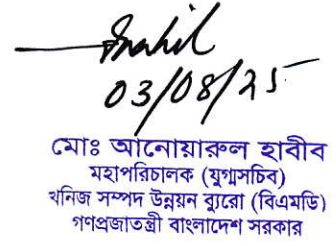 03/08/25
মোঃ আনোয়ারুল হাবীব
মহাপরিচালক (যুগ্মসচিব)
খনিজ সম্পদ উন্নয়ন ব্যুরো (বিএমডি)
গণপ্রজাতন্ত্রী বাংলাদেশ সরকার